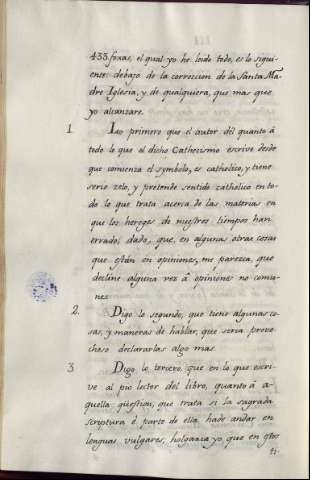 433. foxas, el qual yo he leido todo, es lo siguien-
ente: debajo de la correccion de la Santa Ma-
dre Iglesia, y de qualquiera, que mas que
yo alcanzare.
1. Lo primero que el autor dél quanto á
todo lo que el dicho Cathecismo escrive desde
que comienza el symbolo, es catholico, y tiene
serio zelo, y pretende sentido catholico en to-
do lo que trata acerca de las materias en
que los hereges de nuestros tiempos han
errado, dado, que, en algunas otras cosas
que están en opiniones, me parezca, que
decline alguna vez á opiniones no comu-
nes
2. Digo lo segundo, que tiene algunas co-
sas, y maneras de hablar, que seria prove-
choso declararlas algo mas
3 Digo lo tercero, que en lo que escri-
ve al pio letor del libro, quanto á a-
quella qüestion, que trata si la sagrada
scriptura ó parte de ella hade andar en
lenguas vulgares, holgaria yo que en estos